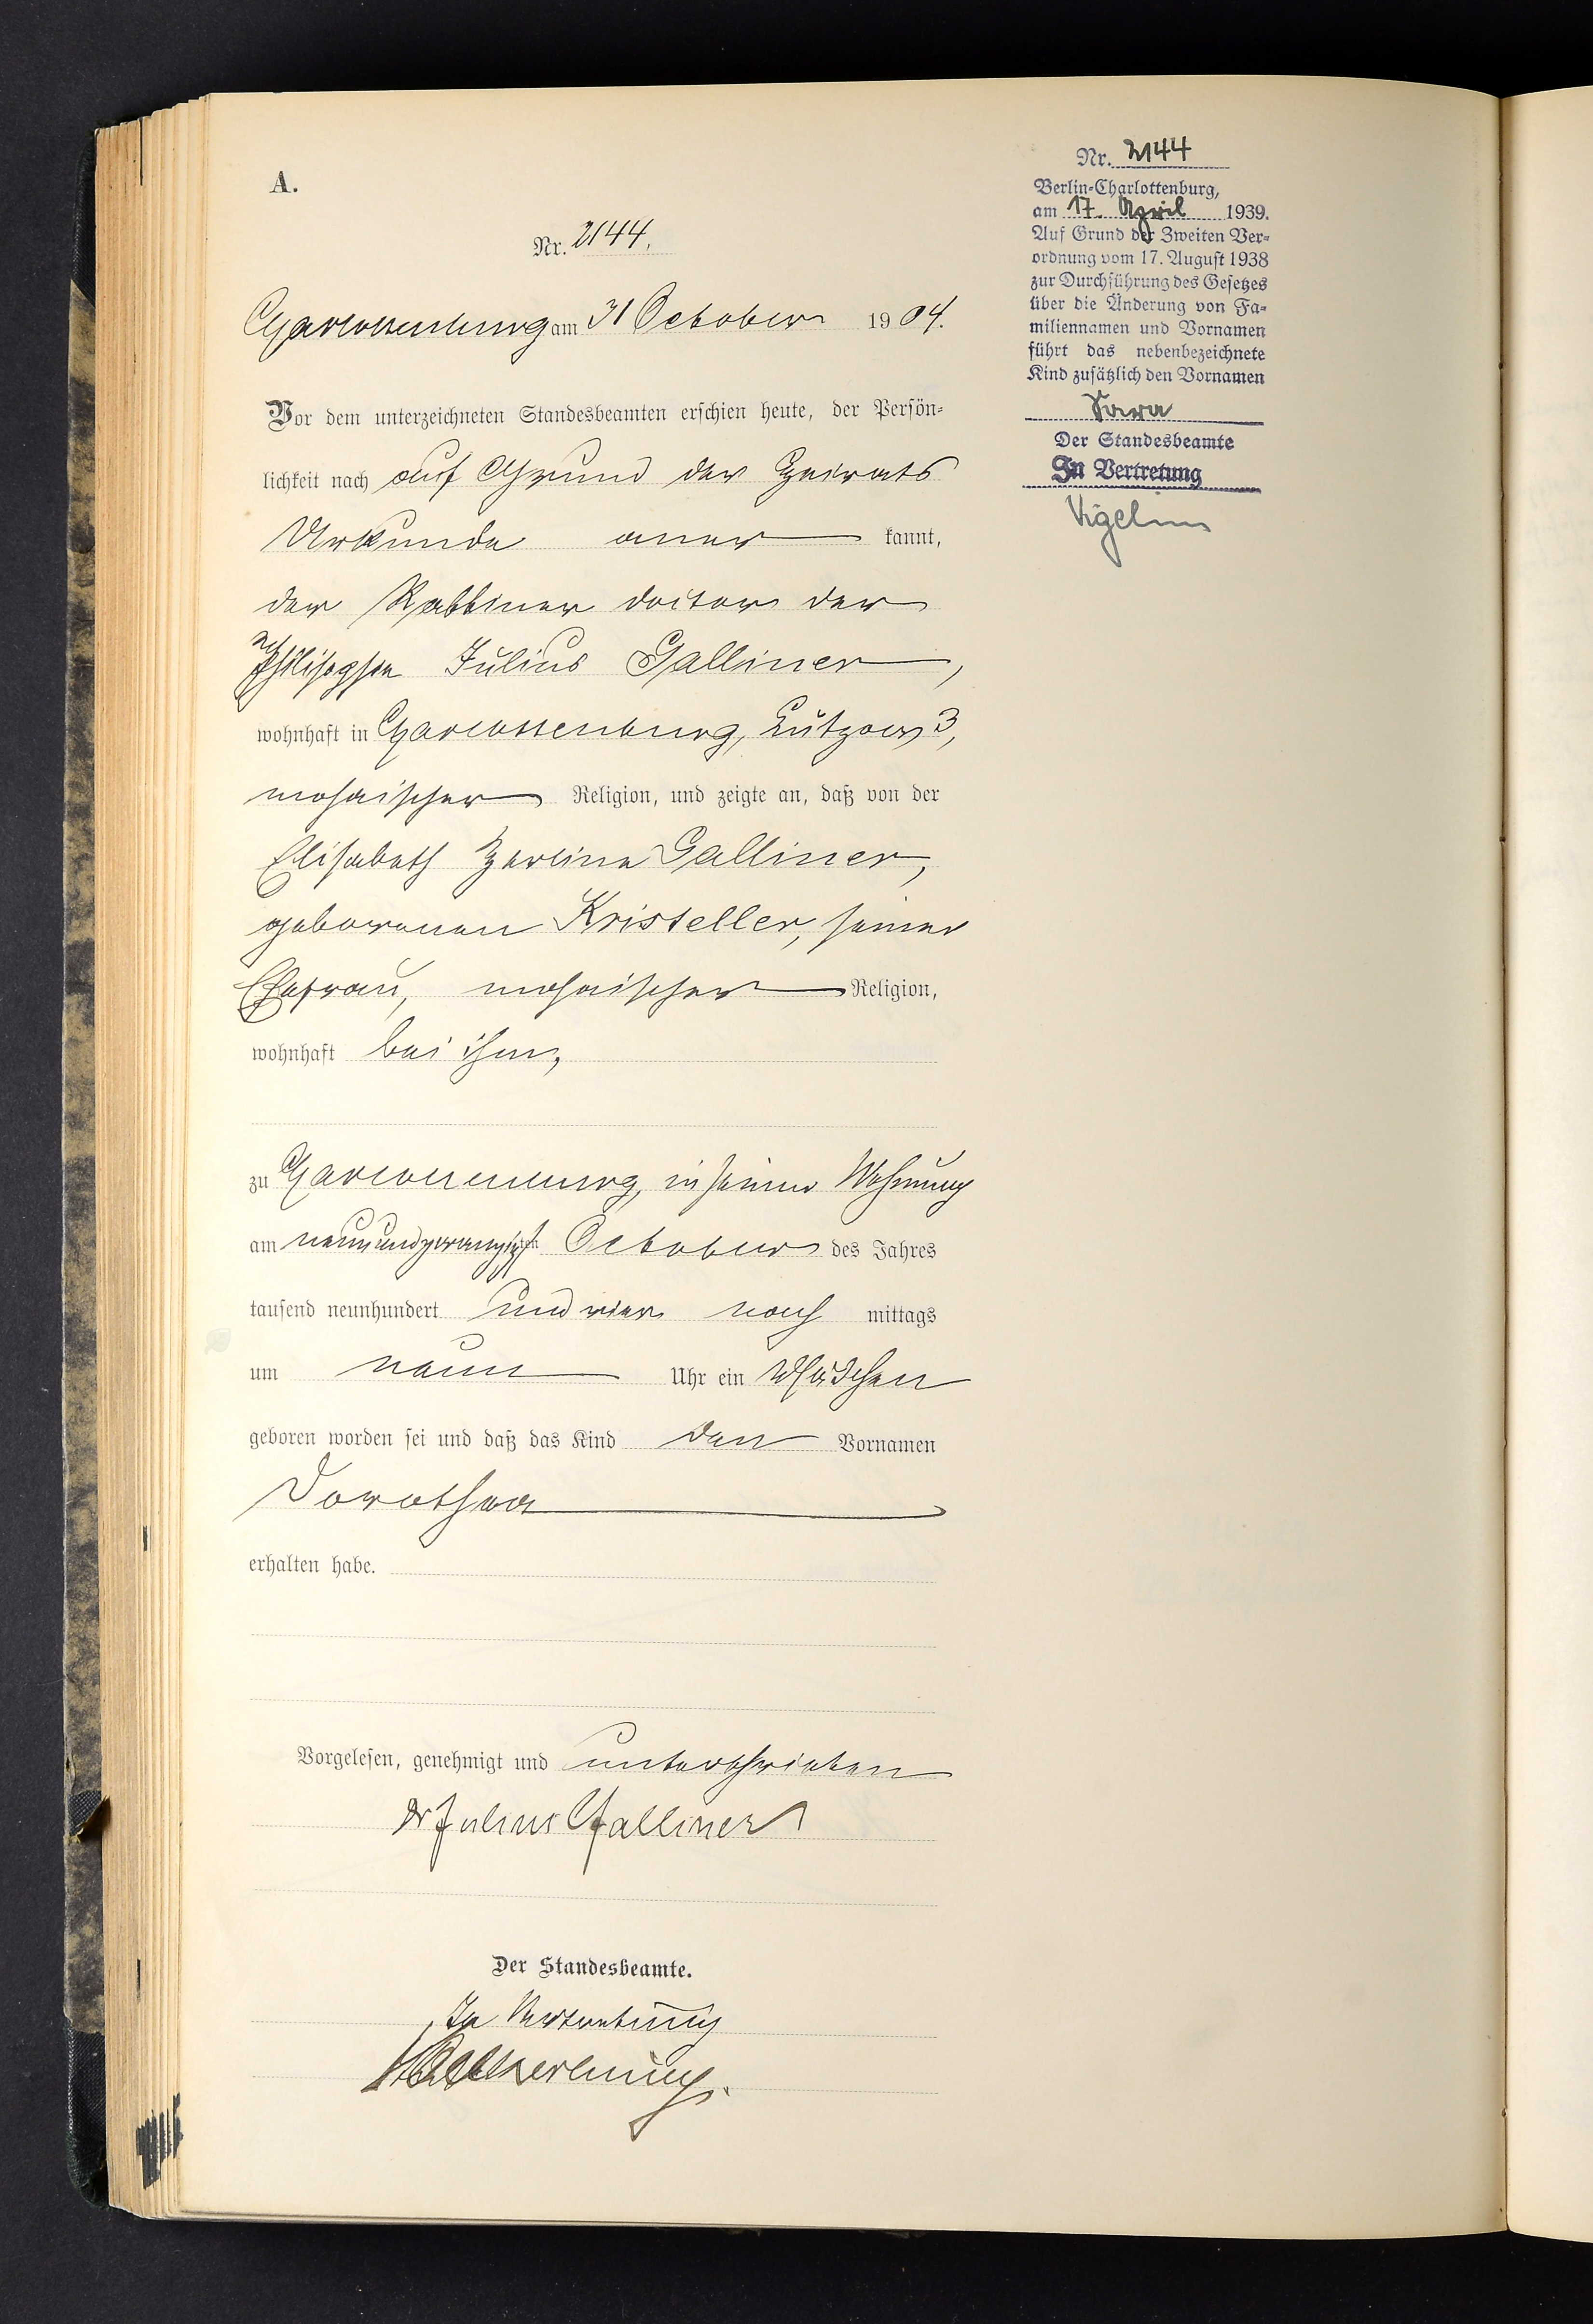 A.
Nr. 2144.
Charlottenburg am 31 October 1904.
Vor dem unterzeichneten Standesbeamten erschien heute, der Persön-
lichkeit nach auf Grund der Heirats
Urkunde aner kannt,
der Rabbiner Doctor der
Philosophie Julius Galliner,
wohnhaft in Charlottenburg, Lützow 3,
mosaischer Religion, und zeigte an, daß von der
Elisabeth Zerline Galliner,
geborenen Kristeller, seiner
Ehefrau, mosaischer Religion,
wohnhaft bei ihm,
zu Charlottenburg, in seiner Wohnung
am neunundzwanzigsten October des Jahres
tausend neunhundert und vier nach mittags
um neun Uhr ein Mädchen
geboren worden sei und daß das Kind den Vornamen
Dorothea
erhalten habe.
Vorgelesen, genehmigt und unterschrieben
Dr Julius Galliner
Der Standesbeamte.
In Vertretung
Nr. 2144
Berlin-Charlottenburg,
am 17. April 1939.
Auf Grund der Zweiten Ver-
ordnung vom 17. August 1938
zur Durchführung des Gesetzes
über die Änderung von Fa-
miliennamen und Vornamen
führt das nebenbezeichnete
Kind zusätzlich den Vornamen
Sara
Der Standesbeamte
In Vertretung